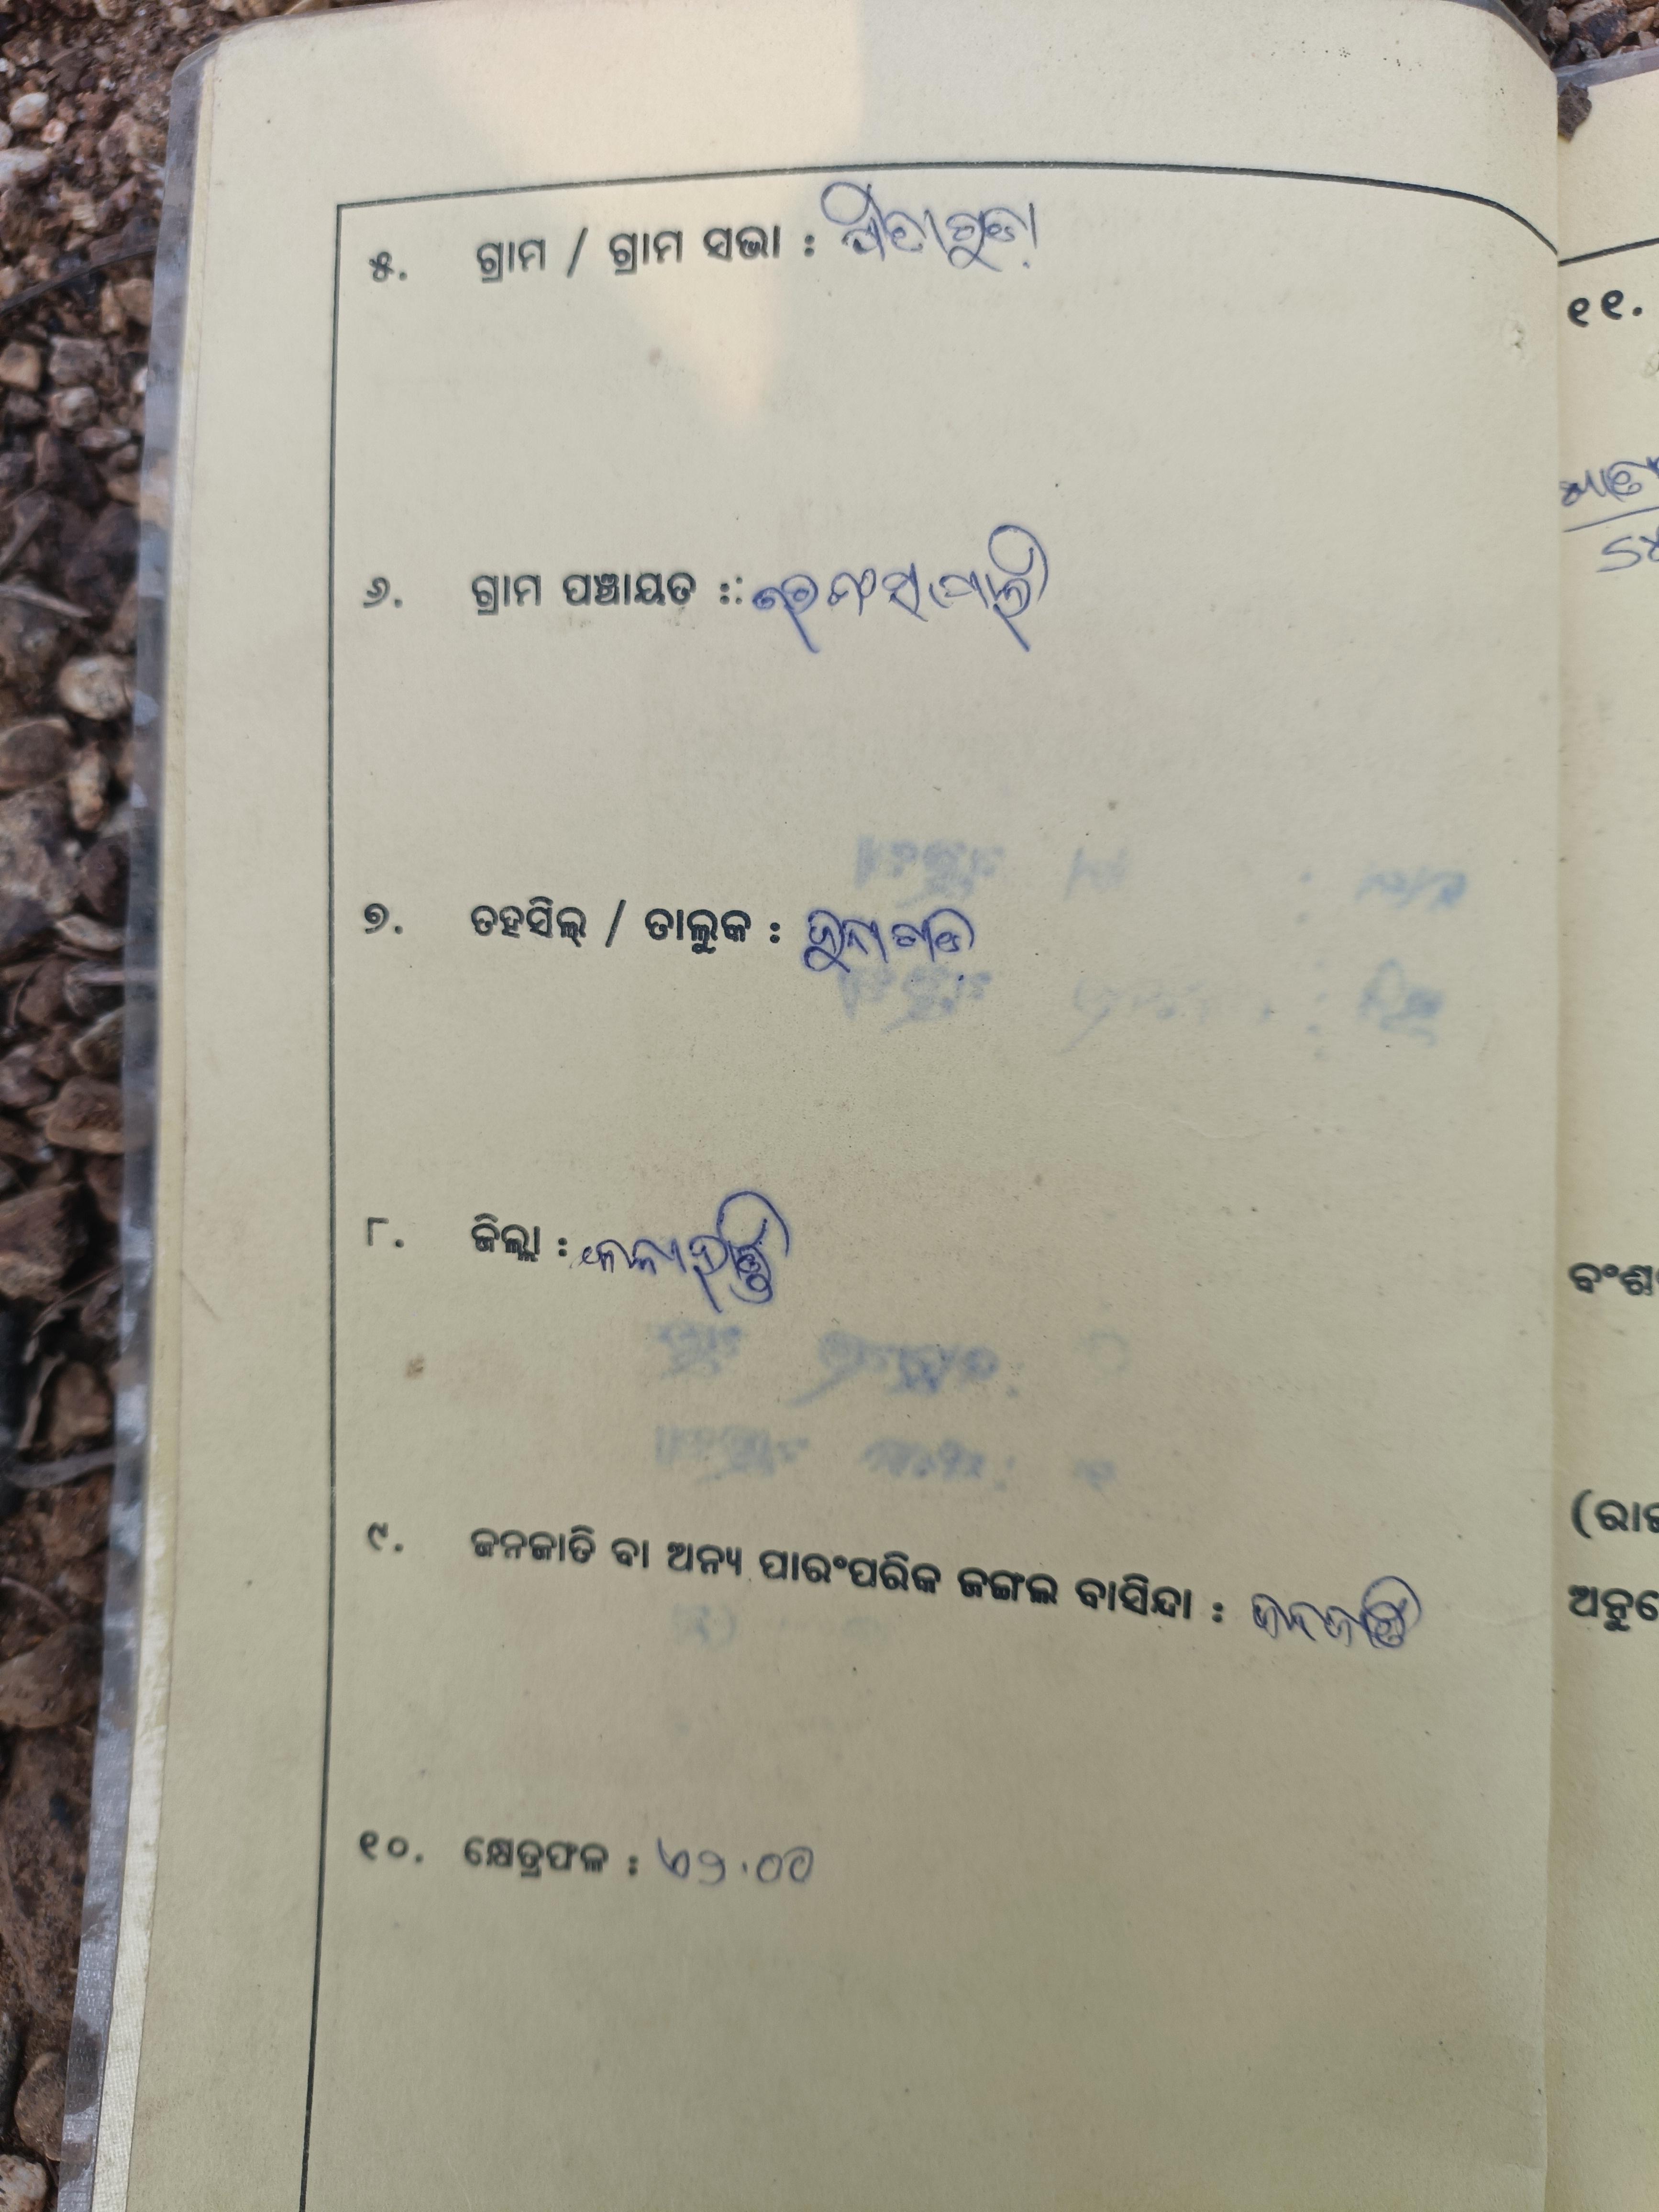 ୫. ଗ୍ରାମ / ଗ୍ରାମ ସଭା :
୬. ଗ୍ରାମ ପଞ୍ଚାୟତ ::
୭. ତହସିଲ୍ / ତାଲୁକ : ଜୁନାଗଡ
୮. ଜିଲ୍ଲା : କଳାହାଣ୍ଡି
୯. ଜନଜାତି ବା ଅନ୍ୟ ପାରଂପରିକ ଜଙ୍ଗଲ ବାସିନ୍ଦା : ଜନଜାତି
୧୦. କ୍ଷେତ୍ରଫଳ :
୧୧.